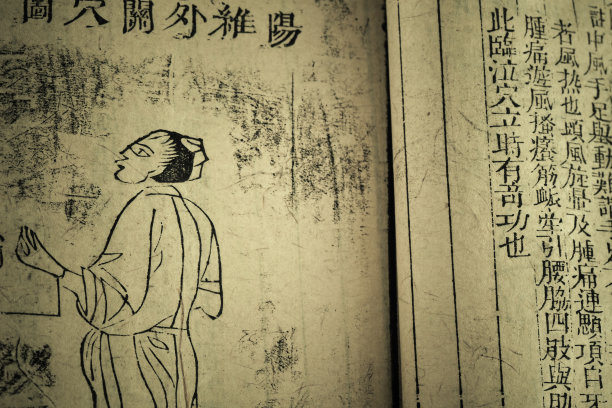 陽維外關穴圖
中風手足舉動難
者風热也頭風旋暈及腫痛連顋項目牙
腫痛遊風搔癢筋脈牽引腰脇四肢與肋
此臨泣穴立時有奇功也